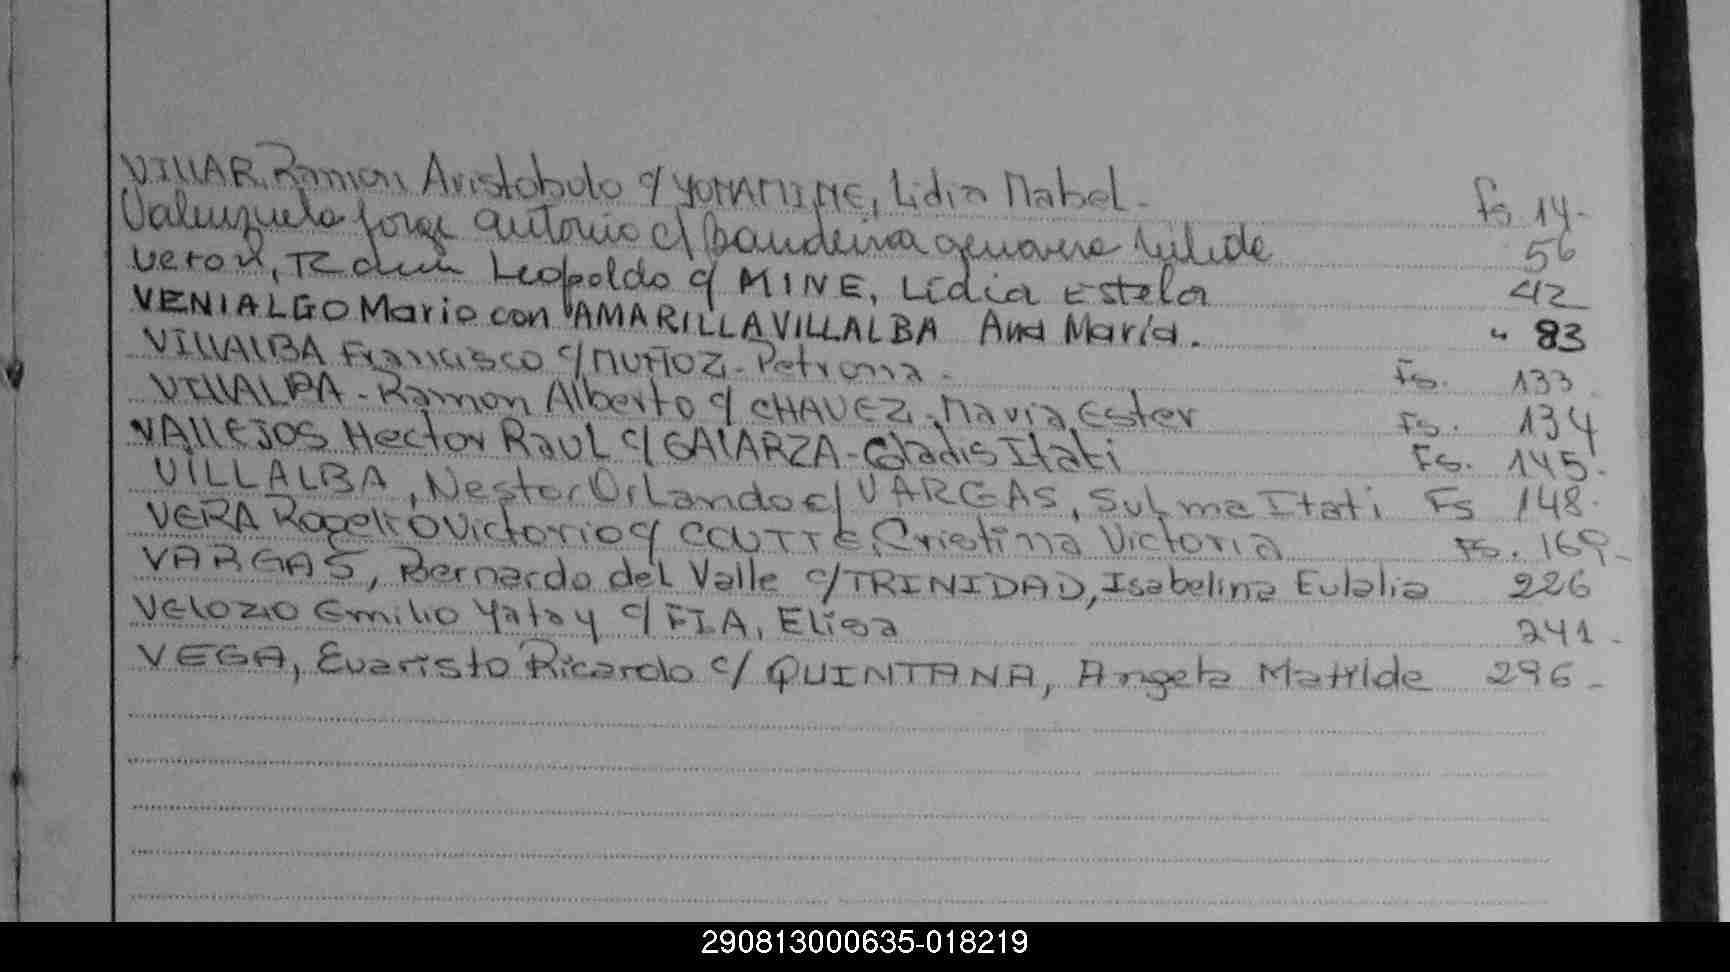 VILLAR, Ramon Aristobulo c/ YONAMINE, Lidia Mabel. Fs 14-
Valenzuela Jorge Antonio c/ bandeira genoveva 56
Veron, Leopoldo c/ MINE, Lidia Estela 42
VENIALGO Mario con AMARILLA VILLALBA Ana María. " 83
VILLALBA Francisco c/ MUÑOZ - Petrona - Fs. 133
VILLALBA - Ramon Alberto c/ CHAVEZ, Maria Ester Fs. 134
VALLEJOS Hector Raul c/ GALARZA - Gladis Itati Fs. 145.
VILLALBA, Nestor Orlando c/ VARGAS, Sulma Itati Fs 148.
VERA Rogelio Victorio c/ Cristina Victoria Fs. 169-
VARGAS, Bernardo del Valle c/ TRINIDAD, Isabelina Eulalia 226
VELOZO Emilio Yatay c/ FIA, Elisa 241-
VEGA, Evaristo Ricardo c/ QUINTANA, Angela Matilde 296-
290813000635-018219